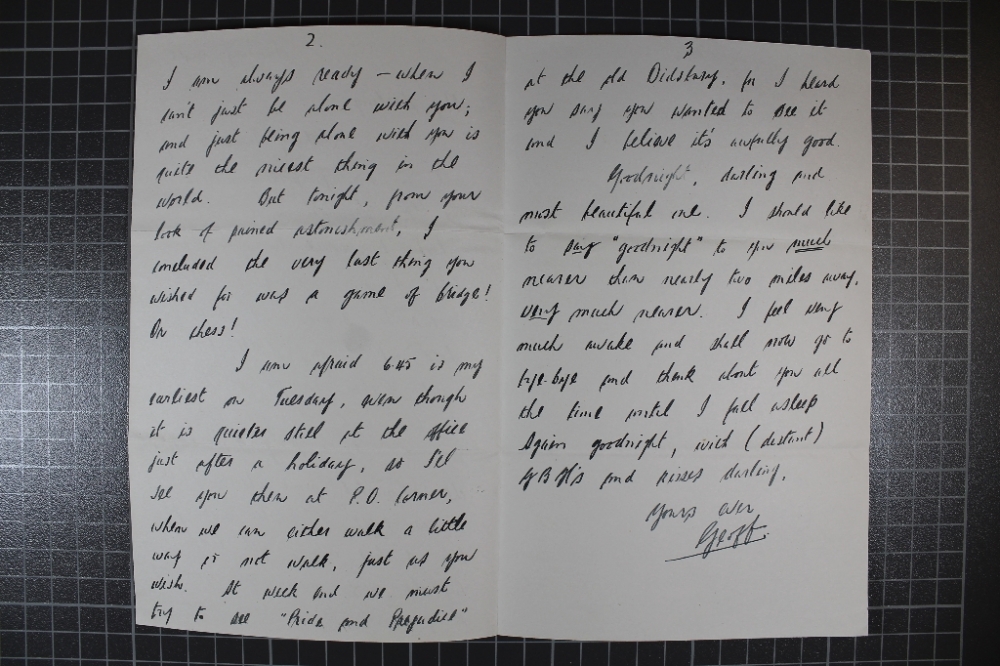 2.
I am always ready – when I
can't just be alone with you;
and just being alone with you is
quite the nicest thing in the
world. But tonight, from your
look of pained astonishment, I
concluded the very last thing you
wished for was a game of bridge!
Or chess!
I am afraid 6.45 is my
earliest on Tuesday, even though
it is quieter still at the office
just after a holiday, so I'll
see you then at P.O. Corner,
when we can either walk a little
way or not walk, just as you
wish. At week end we must
try to see "Pride and Prejudice"
3
at the old Didsbury, for I heard
you say you wanted to see it
and I believe it's awfully good.
Goodnight, darling and
most beautiful one. I should like
to say "goodnight" to you much
nearer than nearly two miles away,
very much nearer. I feel very
much awake and shall now go to
bye-bye and think about you all
the time until I fall asleep
Again goodnight, with (distant)
G B H's and kisses darling,
Yours ever
Geoff.